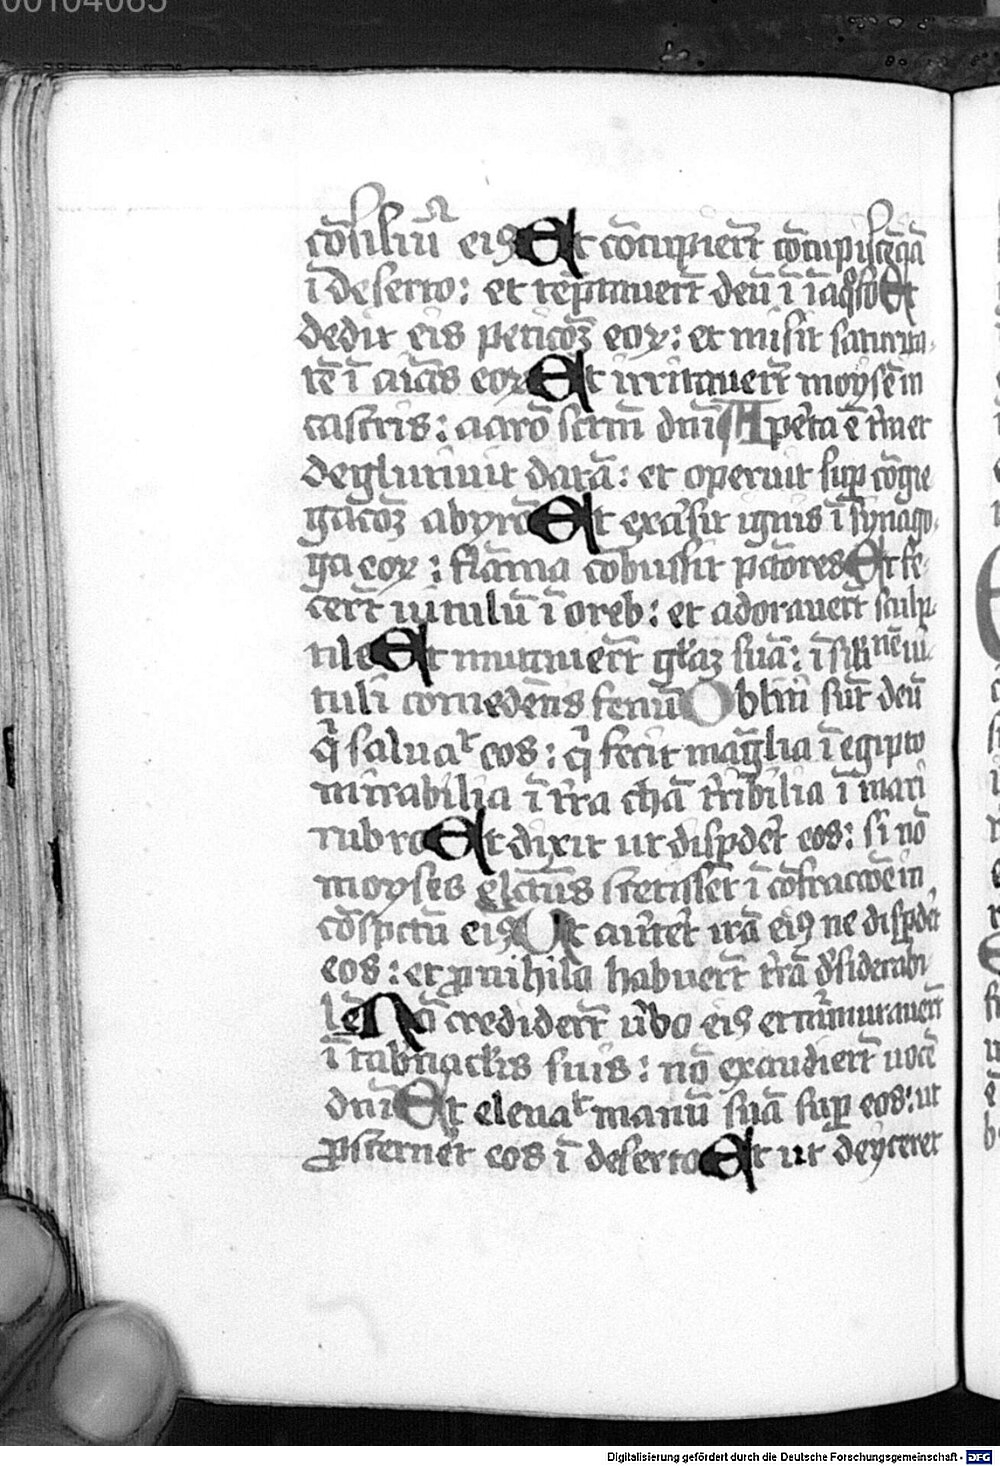 00104065
cōsiliū eiꝰ Et cōcupierūt cōcupiscēciā
ī deserto: et tēptauerūt deū ī īaqͦso Et
dedit eis peticōeꝫ eoꝝ: et misit saturita-
tē ī aīas eoꝝ Et irritauerūt moysē in
castris: aarō sctm̄ dn̄i Apta ē tr̄a et
deglutiuit datā: et operuit suꝑ cōgre
gacōeꝫ abyrō Et exarsit ignis ī synago-
ga eoꝝ: flāma cōbussit pctōres Et fe-
cerūt uitulū ī oreb: et adorauerūt sculp-
tile Et mutauerūt gl̄iaꝫ suā: ī sil̄inē ui-
tuli comedētis fenū Obliti sūt deū
qͥ saluaᷓt eos: qͥ fecit mag̅lia ī egipto
mirabilia ī tr̄a chā tr̄ribilia ī mari
rubro Et dixit ut disꝑdet eos: si nō
moyses elctus stetisset ī cōfraccōe in
cōspctū eiꝰ Ut aūtet irā eiꝰ ne disꝑdet
eos: et ꝓ nihilo habuerūt tr̄ā dͤsiderabi
lē Nō crediderūt ūbo eiꝰ et murmurauerūt
ī tab̄naclis suis: nō exaudierūt uocē
dn̄i Et eleuaᷓt manū suā suꝑ eos: ut
ꝓsternet eos ī deserto Et ut deyceret
Digitalisierung gefördert durch die Deutsche Forschungsgemeinschaft - DFG